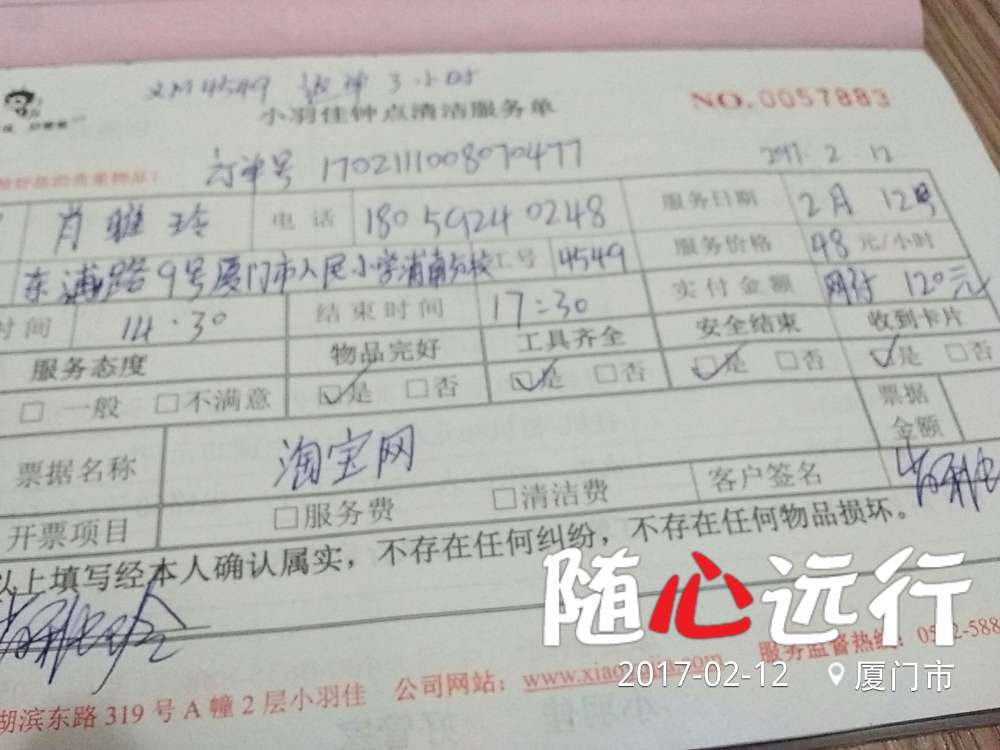 XM4549 3小时
小羽佳钟点清洁服务单 NO.0057883
订单号 1702111008070477 2017.2.12
肖雅玲 电话 18059240248 服务日期 2月12号
东浦路9号厦门市人民小学浦南分校 工号 4549 服务价格 48元/小时
时间 14.30 结束时间 17:30 实付金额 网付120元
服务态度 物品完好 工具齐全 安全结束 收到卡片
□一般 □不满意 ☑是 □否 ☑是 □否 ☑是 □否 ☑是 □否
票据名称 淘宝网 票据金额
开票项目 □服务费 □清洁费 客户签名
以上填写经本人确认属实，不存在任何纠纷，不存在任何物品损坏。
随心远行
服务监督热线：
2017-02-12 厦门市
湖滨东路319号A幢2层小羽佳 公司网站：